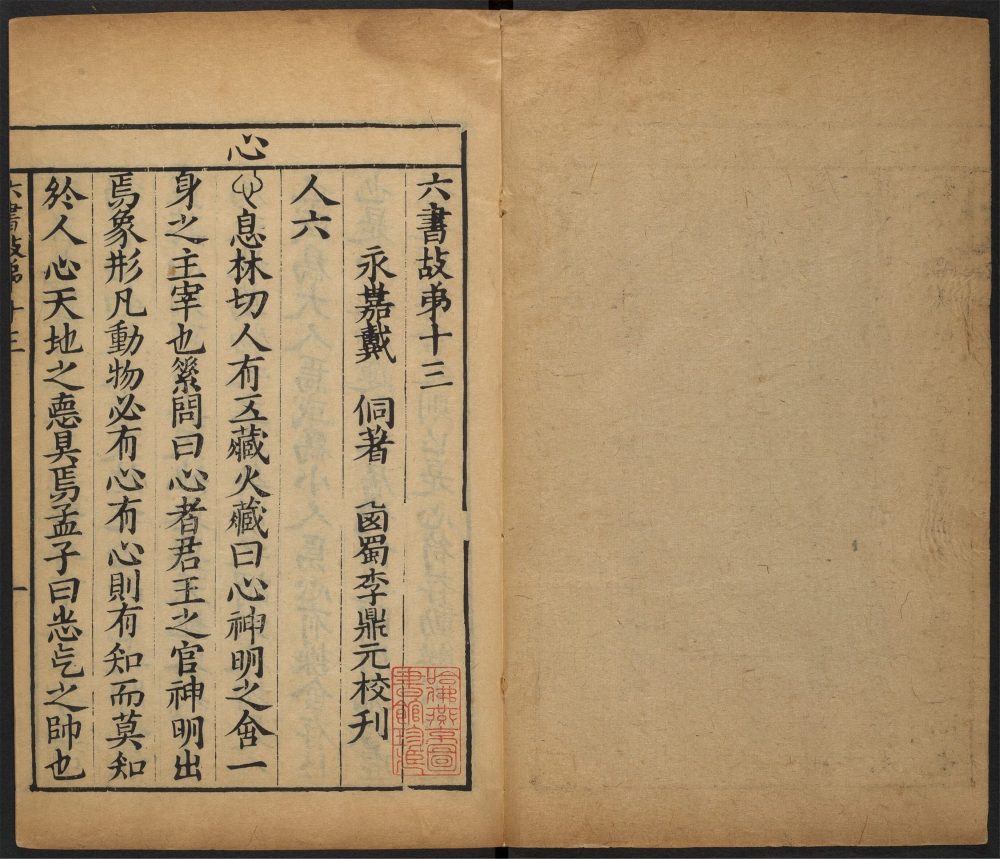 六書故弟十三
永嘉戴 侗著 西蜀李鼎元校刊
人六
心
息林切人有五藏火藏曰心神明之舍一
身之主宰也素問曰心者君王之官神明出
焉象形凡動物必有心有心則有知而莫知
於人心天地之悳具焉孟子曰志气之帥也
六書故弟十三 一
哈佛燕京圖
書館珍藏